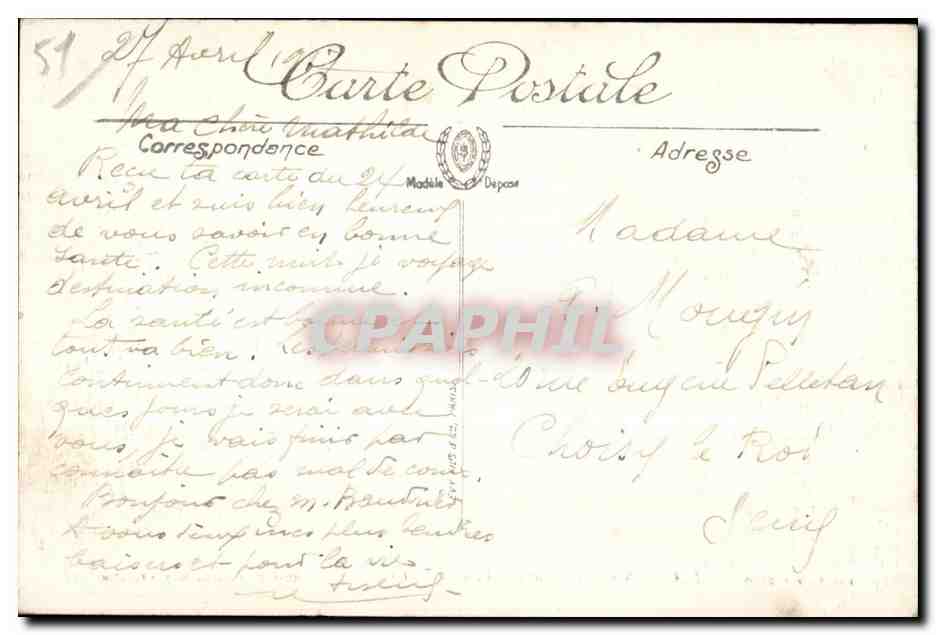 51
27 Avril
Carte Postale
Ma Chère Mathilde
Correspondance
Adresse
Modèle Déposé
Reçu ta carte du 24
avril et suis bien heureux
de vous savoir en bonne
santé. Cette nuit je voyage
destination inconnue.
La santé est bonne
tout va bien.
Continuent donc dans quel-
ques jours je serai avec
vous, je vais finir par
connaitre pas mal de
Bonjour chez M.
A vous deux mes plus tendres
baisers et pour la vie.
Madame
Mougin
10 rue Eugène Pelletan
Choisy le Roi
Seine
CPAPHIL